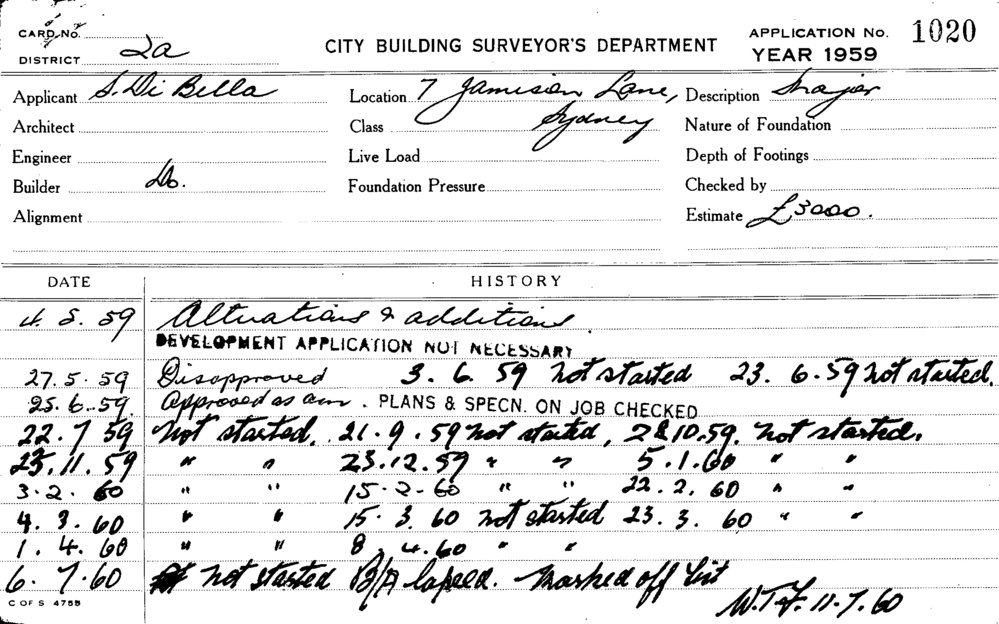 CARD NO.
DISTRICT 2a
CITY BUILDING SURVEYOR'S DEPARTMENT
APPLICATION No. 1020
YEAR 1959
Applicant S. Di Bella
Location 7 Jamison Lane, Sydney
Description Major
Architect
Class
Nature of Foundation
Engineer
Live Load
Depth of Footings
Builder Do.
Foundation Pressure
Checked by
Alignment
Estimate £3000.
DATE HISTORY
4. 5. 59 Alterations & additions
DEVELOPMENT APPLICATION NOT NECESSARY
27. 5. 59 Disapproved 3. 6. 59 Not started 23. 6. 59 Not started.
25. 6. 59 Approved as am. PLANS & SPECN. ON JOB CHECKED
22. 7 59 Not started. 21. 9. 59 Not started, 28 10. 59. Not started.
25. 11. 59 " " 23. 12. 59 " " 5. 1. 60 " "
3. 2. 60 " " 15. 2. 60 " " 22. 2. 60 " "
4. 3. 60 " " 15. 3. 60 Not started 23. 3. 60 " "
1. 4. 60 " " 8. 4. 60 " "
6. 7. 60 Not started B/A lapsed. Marked off list
W.T.F. 11. 7. 60
C OF S 4755